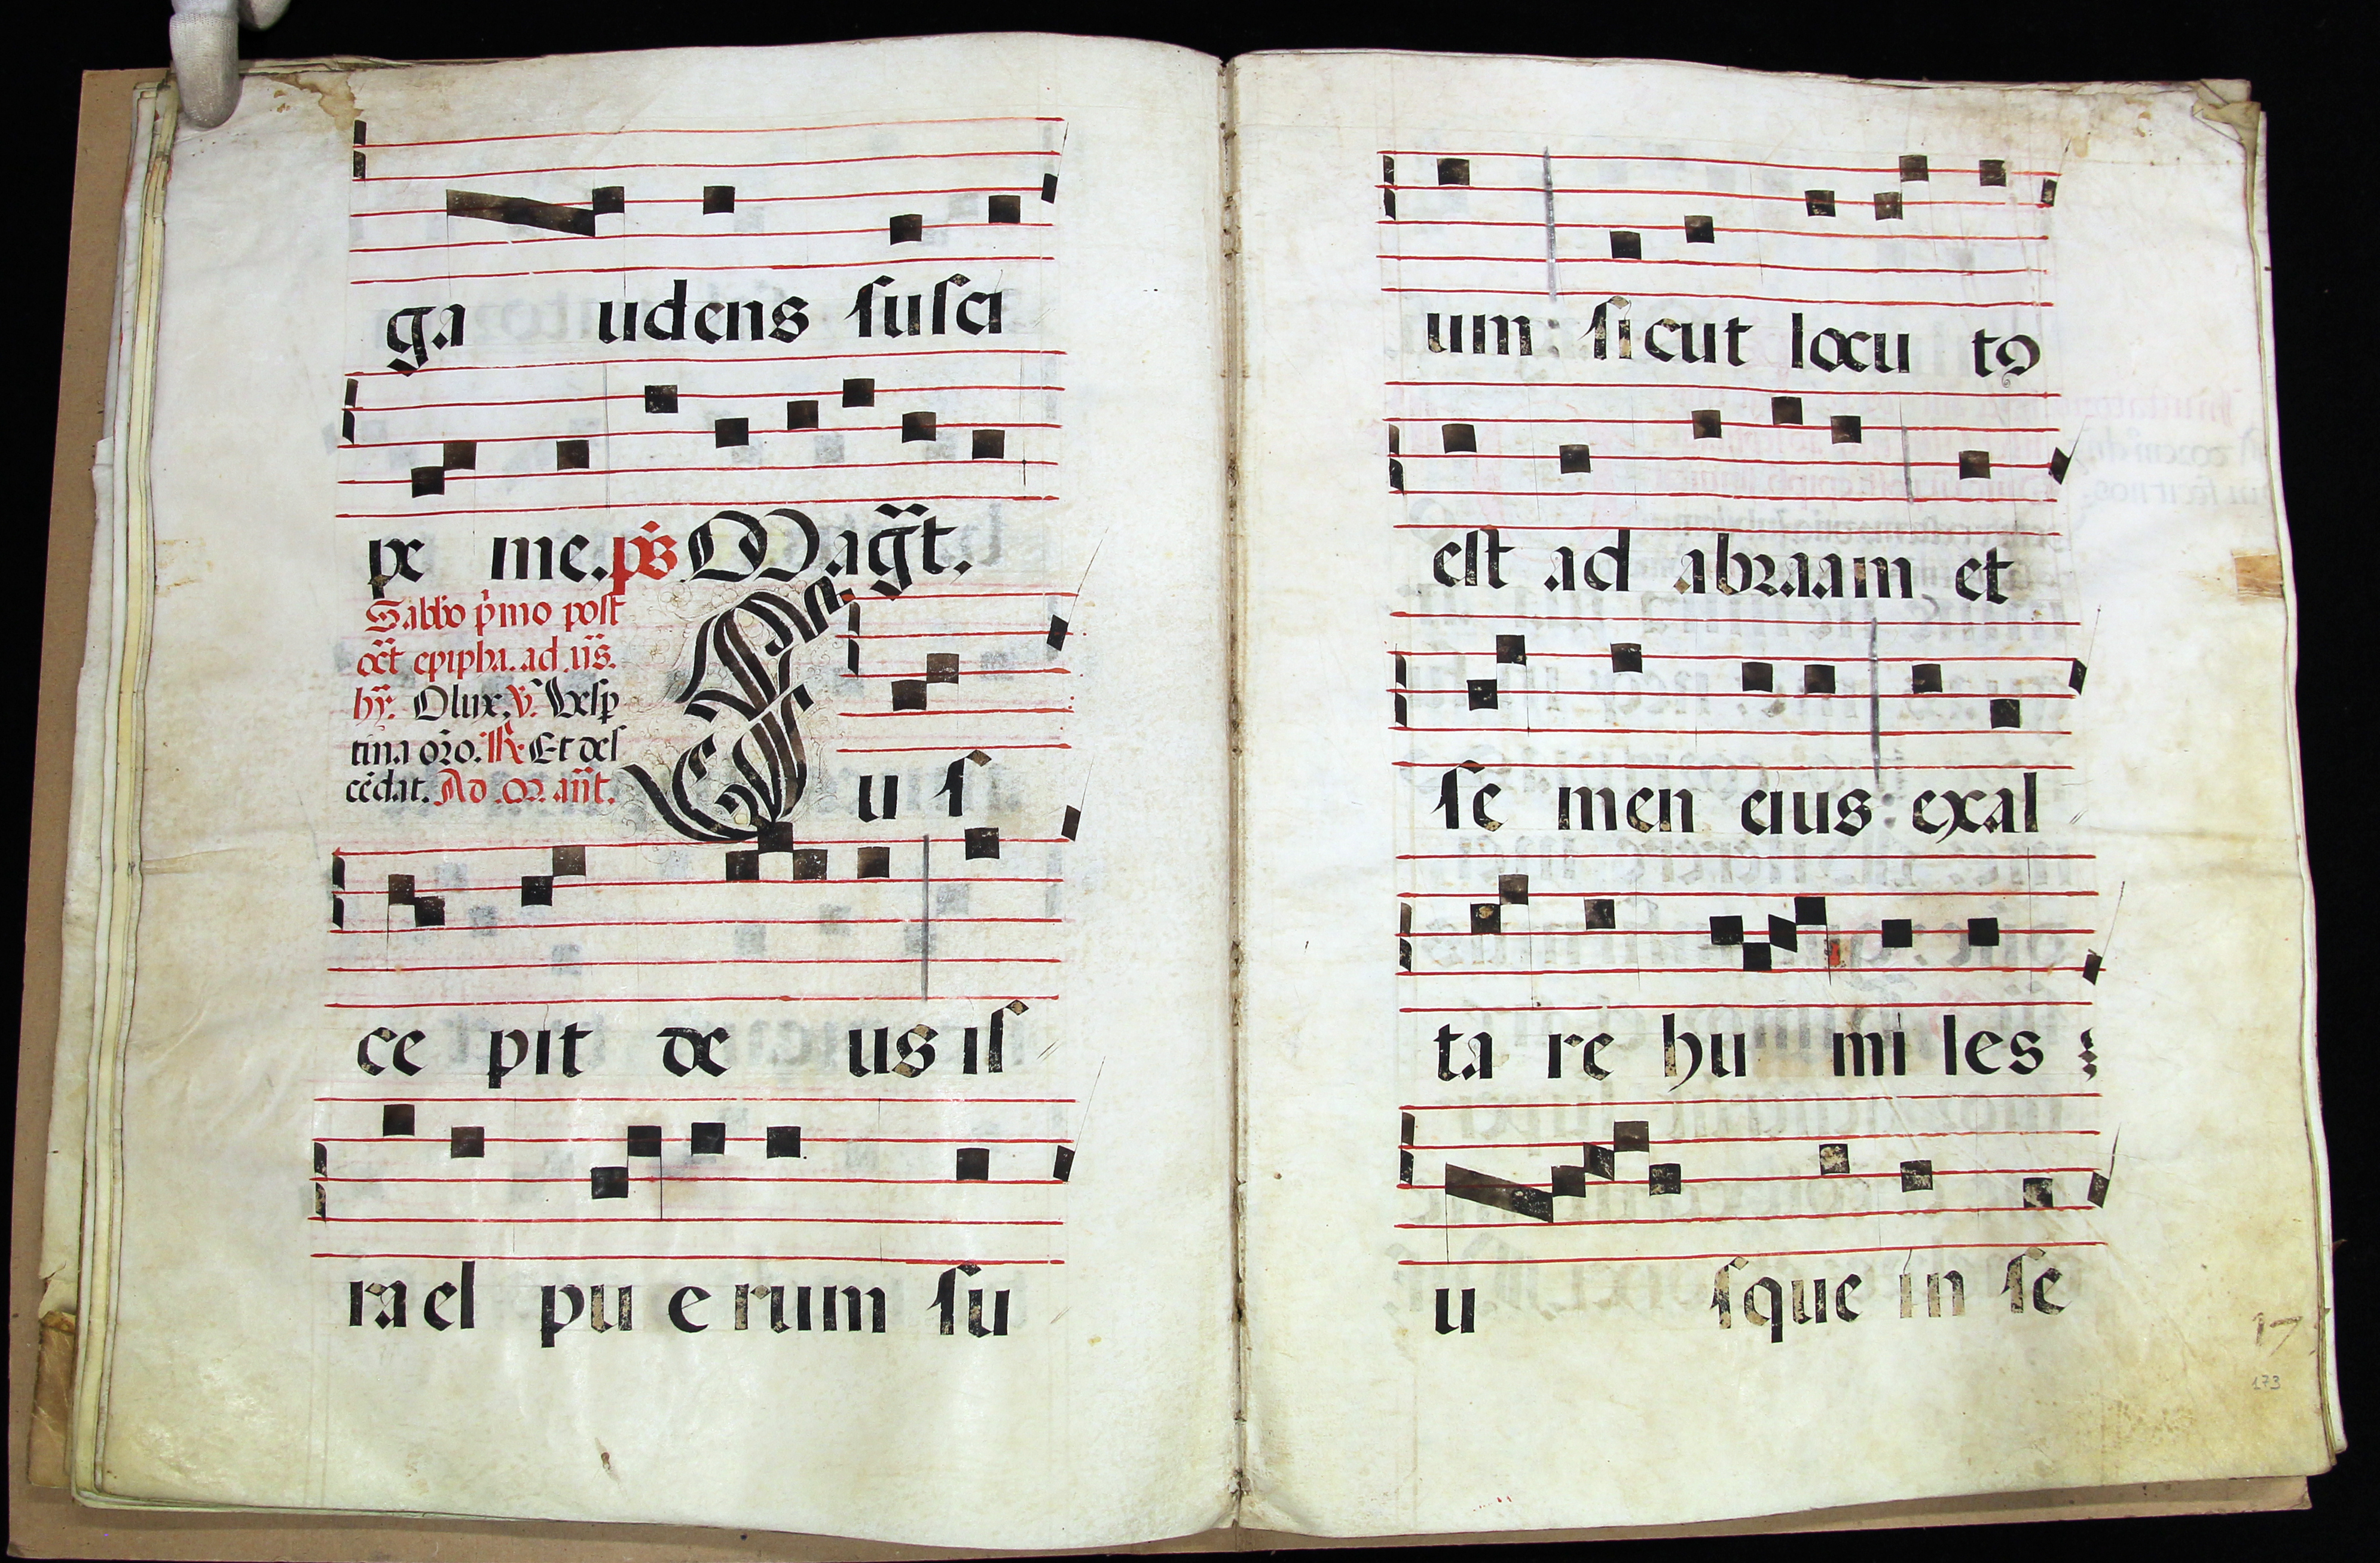 ga udens susci
pe me. p̄s Magt̃.
Sabbo p̃mo post
oct̃ epipha. ad. us̃.
hỹ. O lux, v̄. Vesp
tina oro. R. Et des
cẽdat. Ad. M. añt.
Sus
ce pit de us is
ra el pu e rum su
um : sicut locu tꝰ
est ad abraam et
se men eius : exal
ta re hu mi les
u sque in se
17
173